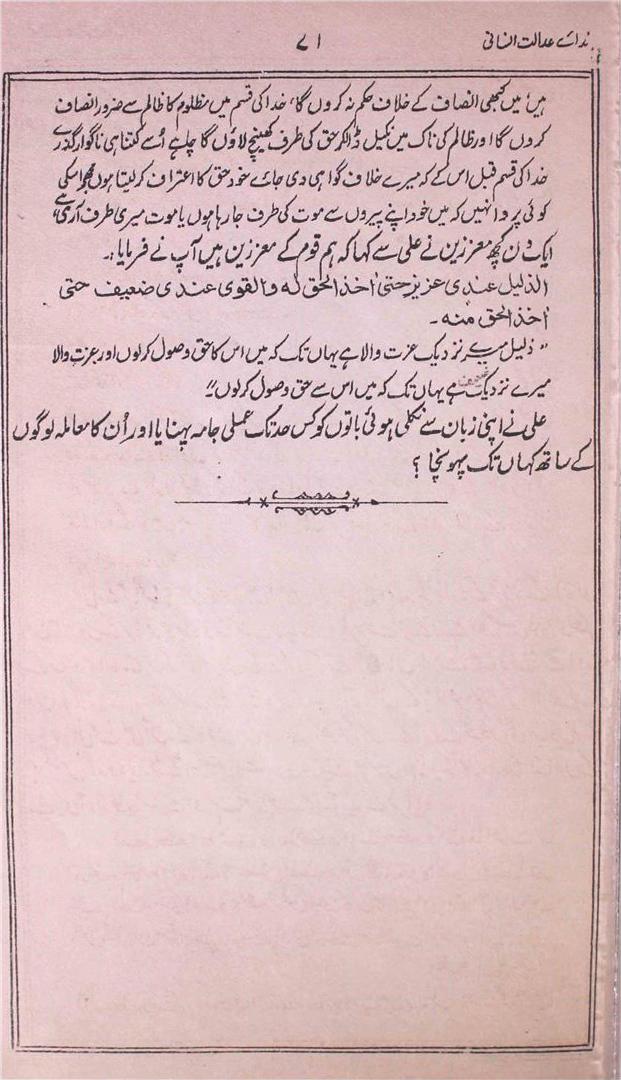 ندائے عدالت انسانی
۷۱
ہیں' میں کبھی انصاف کے خلاف حکم نہ کروں گا، خدا کی قسم میں مظلوم کا ظالم سے ضرور انصاف
کروں گا اور ظالم کی ناک میں نکیل ڈالکر حق کی طرف کھینچ لاؤں گا چاہے اُسے کتنا ہی ناگوار گذرے
خدا کی قسم قبل اس کے کہ میرے خلاف گواہی دی جائے خود حق کا اعتراف کر لیتا ہوں مجھے اسکی
کوئی پروا نہیں کہ میں خود اپنے پیروں سے موت کی طرف جا رہا ہوں یا موت میری طرف آرہی ہے"
ایک دن کچھ معززین نے علی سے کہا کہ ہم قوم کے معززین ہیں آپ نے فرمایا:۔
الذلیل عندی عزیز حتیٰ اخذ الحق لہ والقوی عندی ضعیف حتی
اخذ الحق منہ۔
"ذلیل میرے نزدیک عزت والا ہے یہاں تک کہ میں اس کا حق وصول کرلوں اور عزت والا
میرے نزدیک ضعیف ہے یہاں تک کہ میں اس سے حق وصول کرلوں"
علی نے اپنی زبان سے نکلی ہوئی باتوں کو کس حد تک عملی جامہ پہنایا اور اُن کا معاملہ لوگوں
کے ساتھ کہاں تک پہونچا ؟